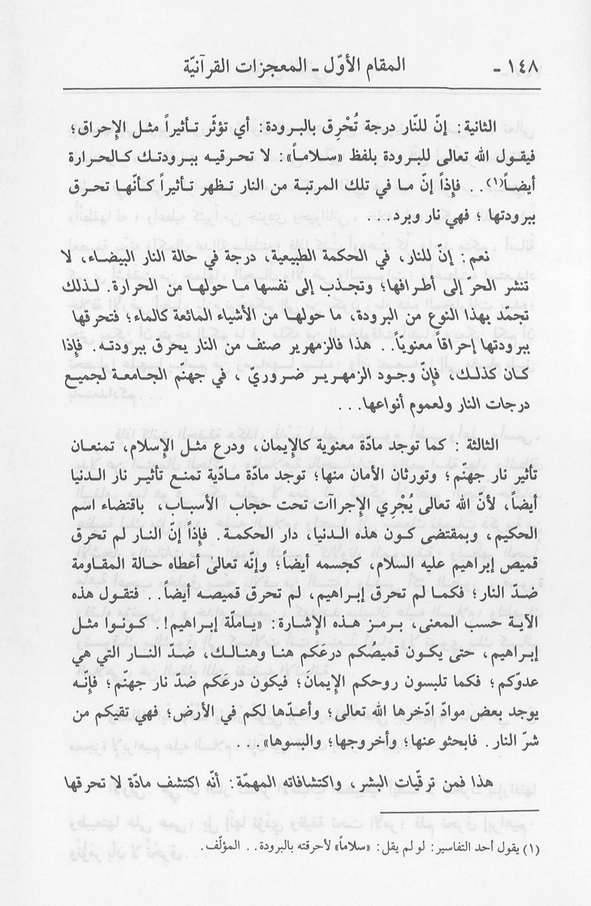 ١٤٨ - المقام الأوّل - المعجزات القرآنيّة
الثانية : إنّ للنّار درجة تُحْرِق بالبرودة : أي تؤثّر تأثيراً مثل الإحراق ؛
فيقول الله تعالى للبرودة بلفظ «سلاماً» : لا تحرقيه ببرودتك كالحرارة
أيضاً(١) . . فإذاً إنّ ما في تلك المرتبة من النار تظهر تأثيراً كأنّها تحرق
ببرودتها ؛ فهي نار وبرد . . .
نعم : إنّ للنار، في الحكمة الطبيعية، درجة في حالة النار البيضاء، لا
تنشر الحرّ إلى أطرافها؛ وتجذب إلى نفسها ما حولها من الحرارة. لذلك
تجمّد بهذا النوع من البرودة، ما حولها من الأشياء المائعة كالماء؛ فتحرقها
ببرودتها إحراقاً معنويّاً. . هذا فالزمهرير صنف من النار يحرق ببرودته. فإذا
كان كذلك، فإنّ وجود الزمهرير ضروريّ ، في جهنّم الجامعة لجميع
درجات النار ولعموم أنواعها. . .
الثالثة : كما توجد مادّة معنوية كالإيمان، ودرع مثل الإسلام، تمنعان
تأثير نار جهنّم؛ وتورثان الأمان منها؛ توجد مادّة مادّية تمنع تأثير نار الدنيا
أيضاً، لأنّ الله تعالى يُجْرِي الإجراآت تحت حجاب الأسباب، باقتضاء اسم
الحكيم، وبمقتضى كون هذه الدنيا، دار الحكمة. فإذاً إنّ النار لم تحرق
قميص إبراهيم عليه السلام، كجسمه أيضاً؛ وإنّه تعالى أعطاه حالة المقاومة
ضدّ النار؛ فكما لم تحرق إبراهيم، لم تحرق قميصه أيضاً. . فتقول هذه
الآية حسب المعنى، برمز هذه الإشارة: «ياملّة إبراهيم!. كونوا مثل
إبراهيم، حتى يكون قميصُكم درعَكم هنا وهنالك، ضدّ النار التي هي
عدوّكم؛ فكما تلبسون روحكم الإيمانَ؛ فيكون درعَكم ضدّ نار جهنّم؛ فإنّه
يوجد بعض موادّ ادّخرها الله تعالى؛ وأعدّها لكم في الأرض؛ فهي تقيكم من
شرّ النار. فابحثو عنها؛ وأخروجها؛ والبسوها». . .
هذا فمن ترقّيات البشر، واكتشافاته المهمّة: أنّه اكتشف مادّة لا تحرقها
(١) يقول أحد التفاسير: لو لم يقل: «سلاماً» لأحرقته بالبرودة. . المؤلّف.